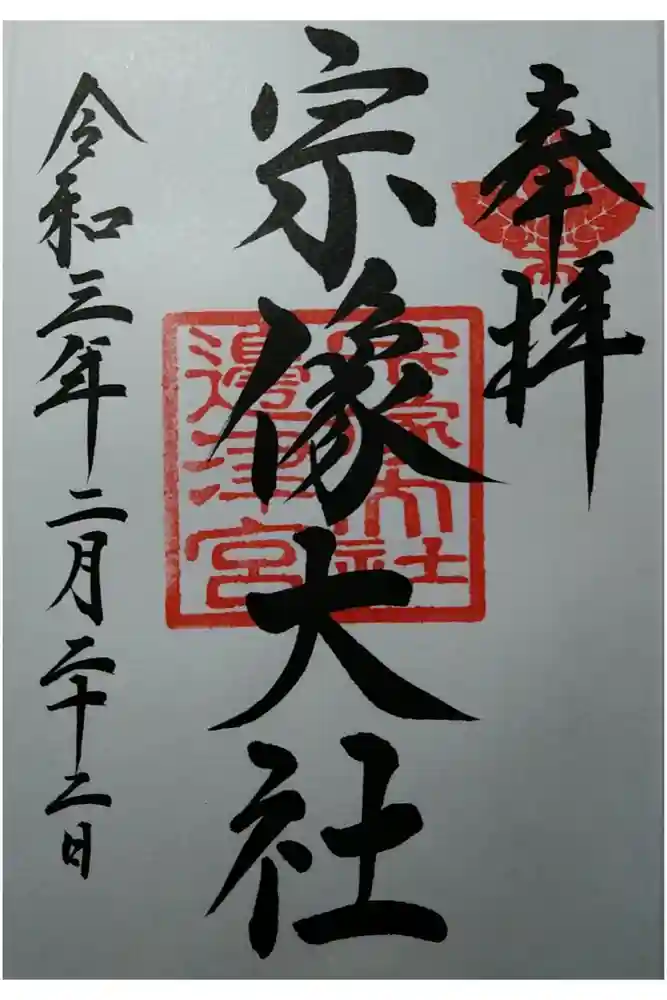 奉拝
宗像大社
宗像大社
邉津宮
令和三年二月二十二日